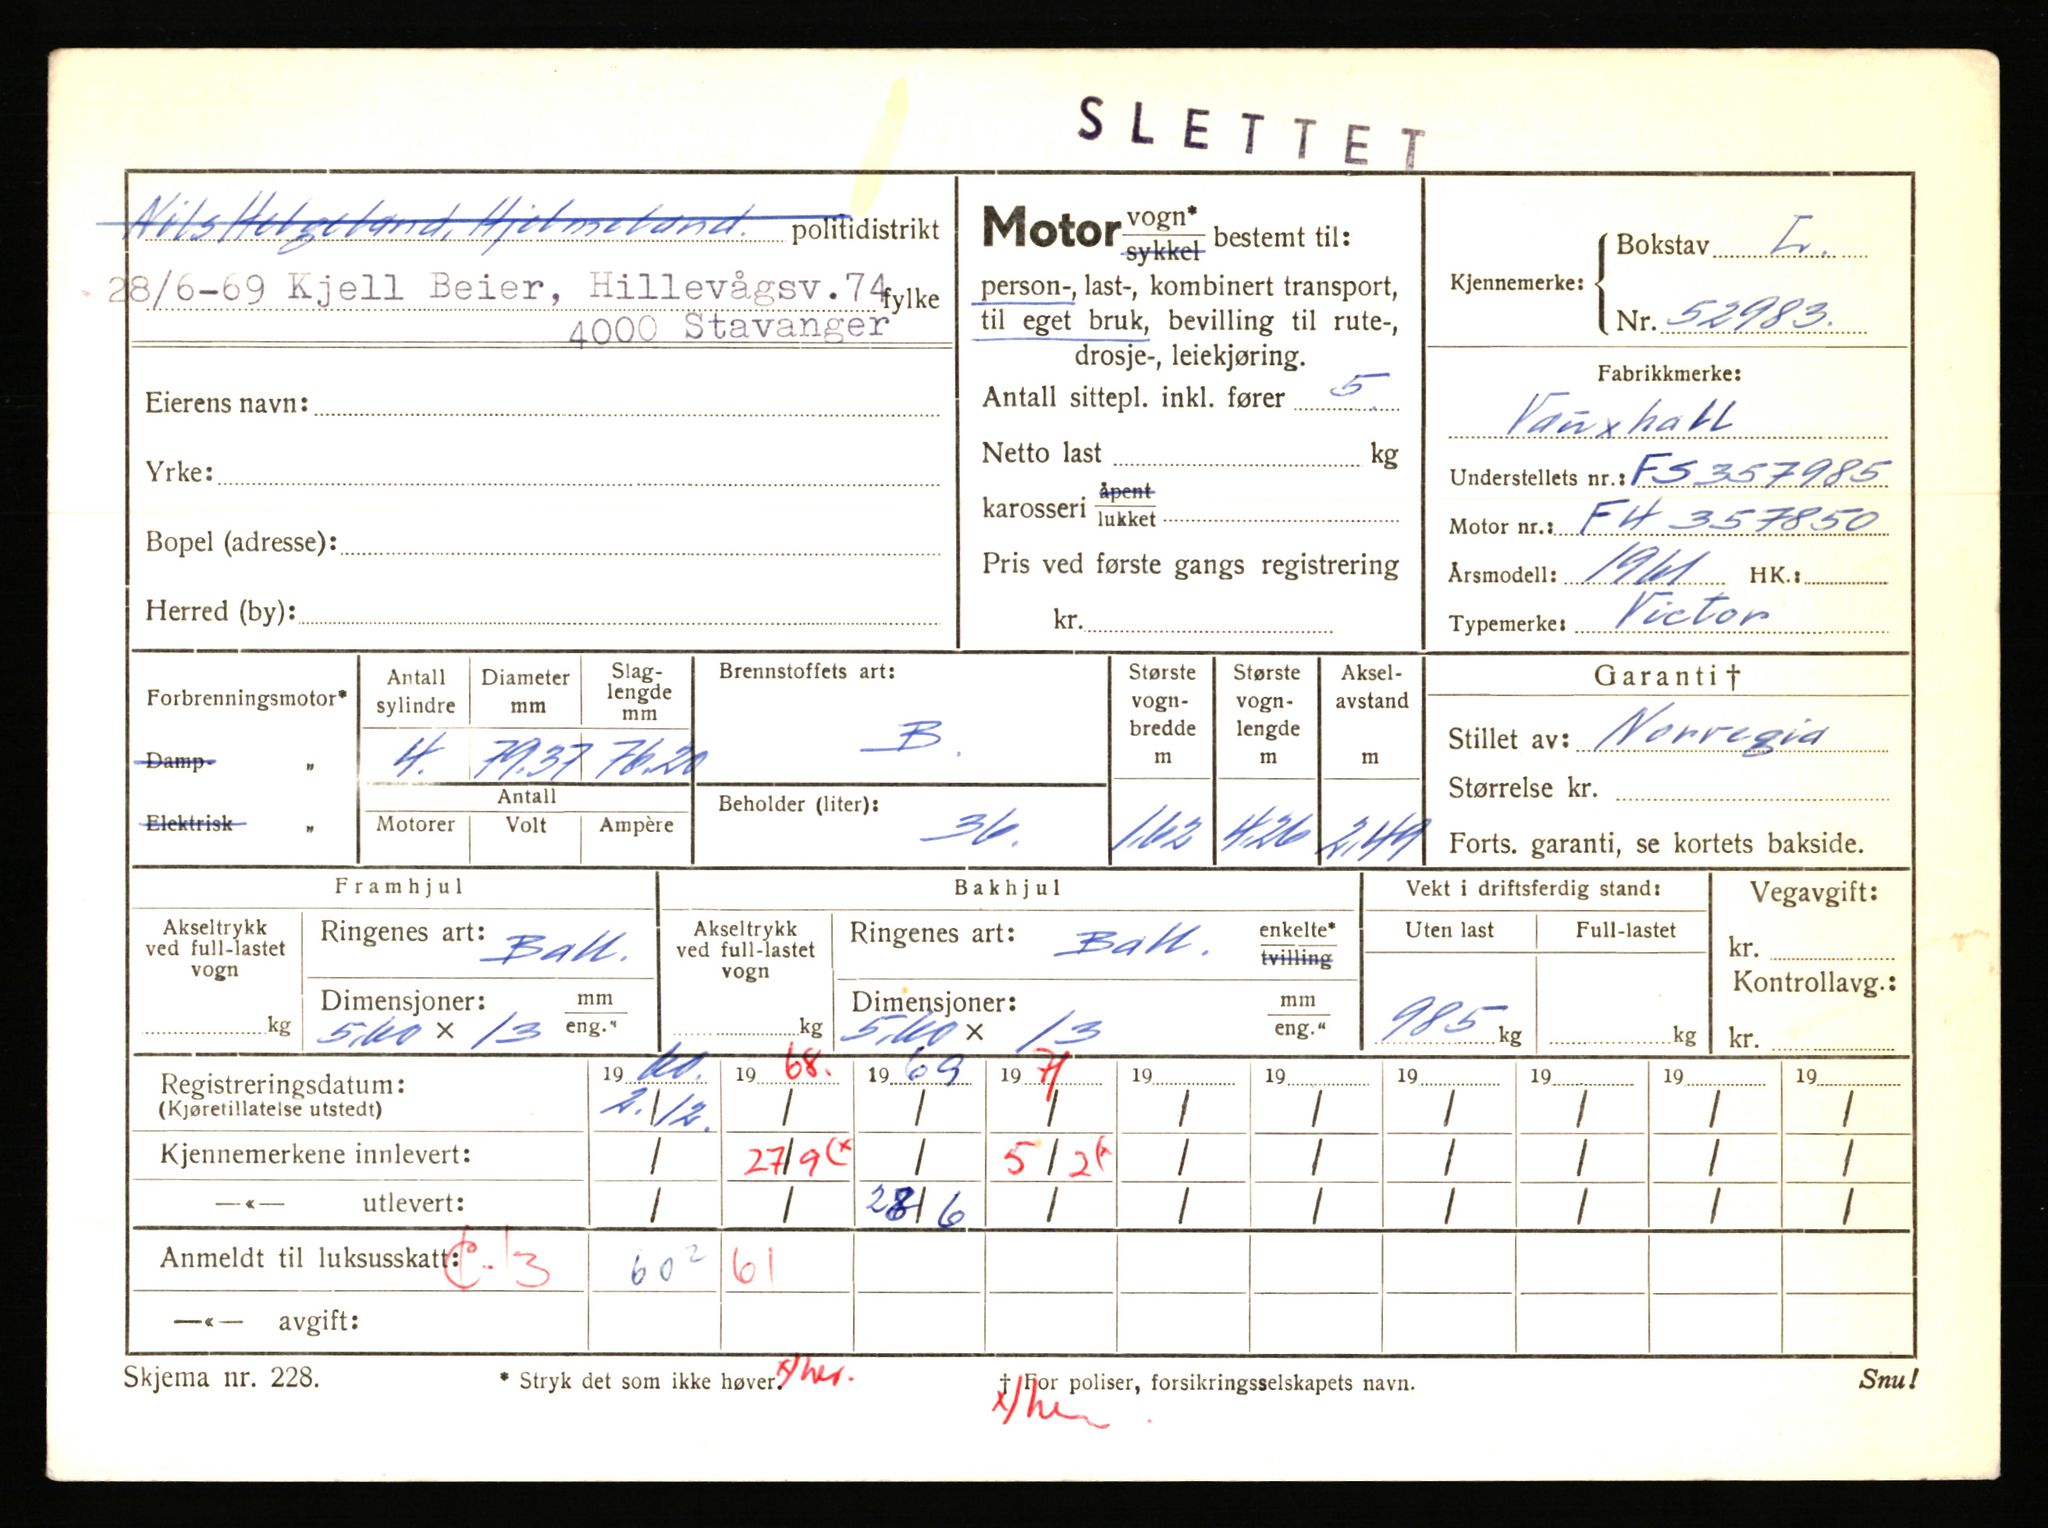 SLETTET
Nils Helgeland, Hjelmeland. politidistrikt
28/6-69 Kjell Beier, Hillevågsv.74 fylke
4000 Stavanger
Eierens navn:
Yrke:
Bopel (adresse):
Herred (by):
Motor vogn*
sykkel bestemt til:
person-, last-, kombinert transport,
til eget bruk, bevilling til rute-,
drosje-, leiekjøring.
Antall sittepl. inkl. fører 5.
Netto last kg
karosseri åpent
lukket
Pris ved første gangs registrering
kr.
Kjennemerke: Bokstav L.
Nr. 52983.
Fabrikkmerke:
Vauxhall
Understellets nr.: FS 357985
Motor nr.: FH 357850
Årsmodell: 1961 HK.:
Typemerke: Victor
Forbrenningsmotor*
Damp- „
Elektrisk „
Antall sylindre
4.
Diameter mm
79.37
Slag-lengde mm
76.20
Antall
Motorer Volt Ampère
Brennstoffets art:
B.
Beholder (liter):
36.
Største vogn-bredde m
1.62
Største vogn-lengde m
4.26
Aksel-avstand m
2,49
Garanti †
Stillet av: Norvegia
Størrelse kr.
Forts. garanti, se kortets bakside.
Framhjul
Akseltrykk ved full-lastet vogn
kg
Ringenes art: Ball.
Dimensjoner: mm
5,60 × 13 eng."
Bakhjul
Akseltrykk ved full-lastet vogn
kg
Ringenes art: Ball. enkelte*
tvilling
Dimensjoner: mm
5,60 × 13 eng."
Vekt i driftsferdig stand:
Uten last Full-lastet
985 kg kg
Vegavgift:
kr.
Kontrollavg.:
kr.
Registreringsdatum: 19 60. 19 68. 19 69 19 71 19 19 19 19 19 19
(Kjøretillatelse utstedt) 2. / 12. / / / / / / / / /
Kjennemerkene innlevert: / 27/9 (x / 5/2 (x / / / / / /
—«— utlevert: / / 28/6 / / / / / / /
Anmeldt til luksusskatt: 13 60² 61
—«— avgift:
Skjema nr. 228. * Stryk det som ikke høver. x/her. † For poliser, forsikringsselskapets navn. Snu!
x/her